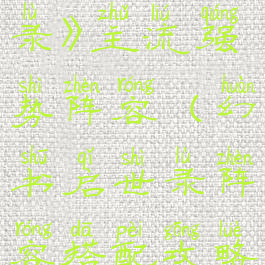 lù zhǔ liú qiáng
录》主流强
shì zhèn róng huàn
势阵容（幻
shū qǐ shì lù zhèn
书启世录阵
róng dā pèi gōng lüè
容搭配攻略